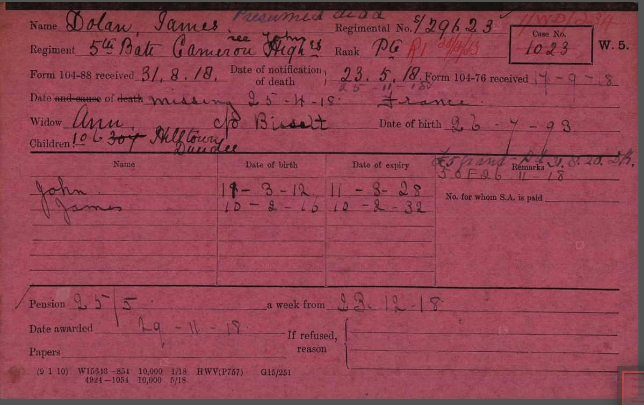 Presumed dead
Name Dolan, James. see John Regimental No. S/29623
Regiment 5th Batt Cameron Highrs Rank Pte
Case No. 1023 W. 5.
Form 104-88 received 31.8.18. Date of notification of death 23.5.18. Form 104-76 received 7-9-18
Date and cause of death missing 25-4-18. France.
Widow Ann, c/o Bissett Date of birth 26-7-93
Children 106 307 Hilltown Dundee
Name Date of birth Date of expiry Remarks
John 11-3-12 11-3-28
James 10-2-16 10-2-32
No. for whom S.A. is paid
Pension 25/5 a week from 23.12-18
Date awarded 29-11-18.
If refused, reason
Papers
(9 1 10) W15643—854 10,000 1/18 HWV(P757) G15/251
4924—1054 10,000 5/18